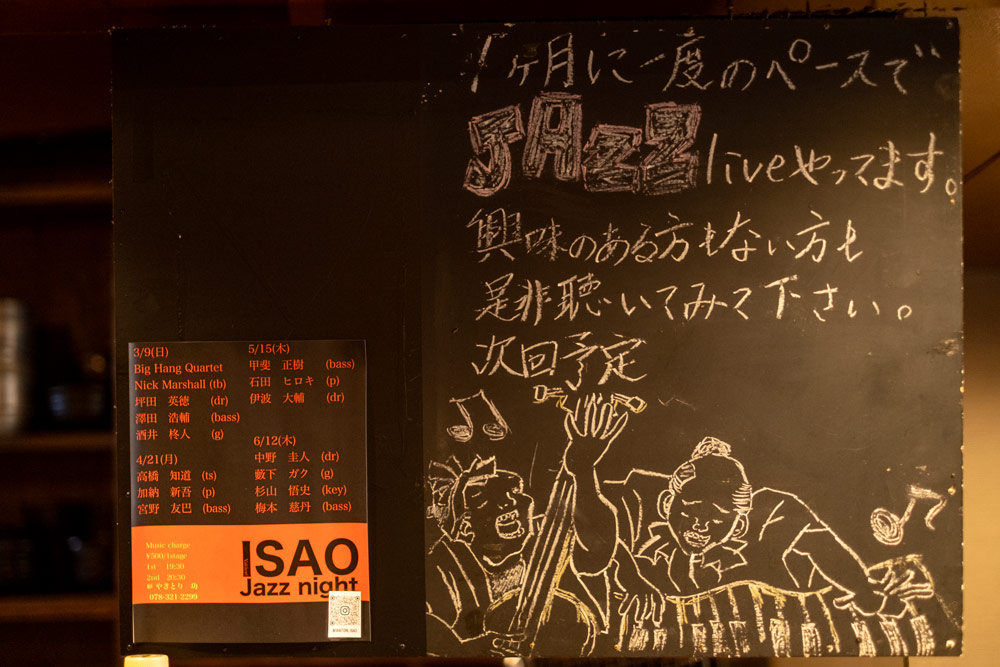 1ヶ月に一度のペースで
JAZZ liveやってます。
興味のある方もない方も
是非聴いてみて下さい。
次回予定
3/9(日)
Big Hang Quartet
Nick Marshall (tb)
坪田 英徳 (dr)
澤田 浩輔 (bass)
酒井 柊人 (g)
4/21(月)
高橋 知道 (ts)
加納 新吾 (p)
宮野 友巴 (bass)
5/15(木)
甲斐 正樹 (bass)
石田 ヒロキ (p)
伊波 大輔 (dr)
6/12(木)
中野 圭人 (dr)
藪下 ガク (g)
杉山 悟史 (key)
梅本 慈丹 (bass)
Music charge
¥500/1stage
1st 19:30
2nd 20:30
@ やきとり 功
078-321-2299
ISAO
Jazz night